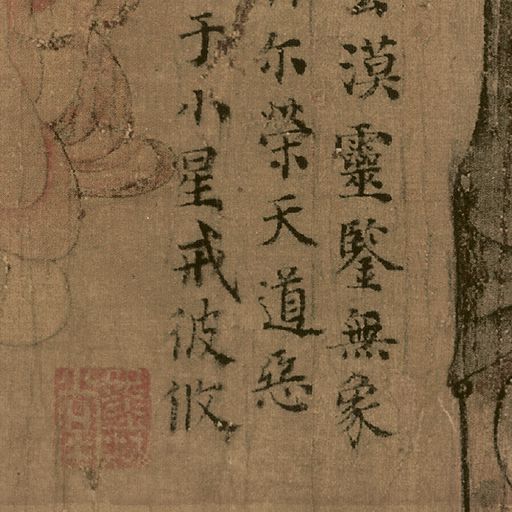 漠靈鑒無象
尔榮天道惡
于小星戒彼攸